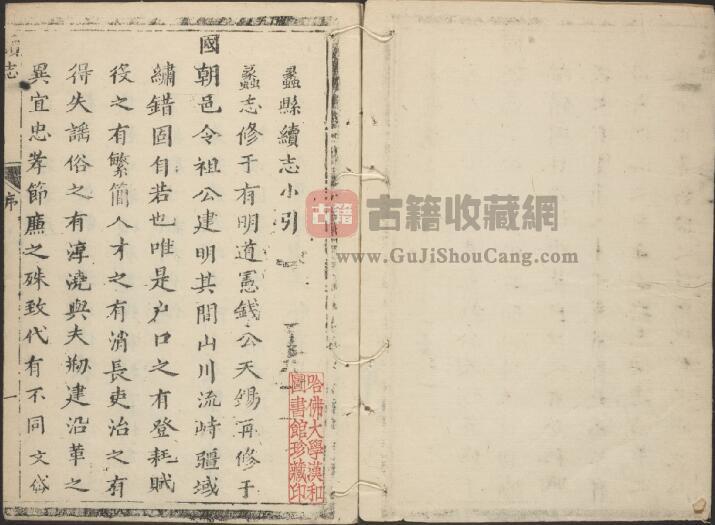 蠡縣續志小引
蠡志修于有明道憲錢公天錫再修于
國朝邑令祖公建明其間山川流峙疆域
繡錯固自若也唯是户口之有登耗賦
役之有繁簡人才之有消長吏治之有
得失謡俗之有淳澆與夫刱建沿革之
異宜忠孝節廉之殊致代有不同文俗
志
序
一
哈佛大學漢和
圖書館珍藏印
古籍
古籍收藏網
www.GuJiShouCang.com